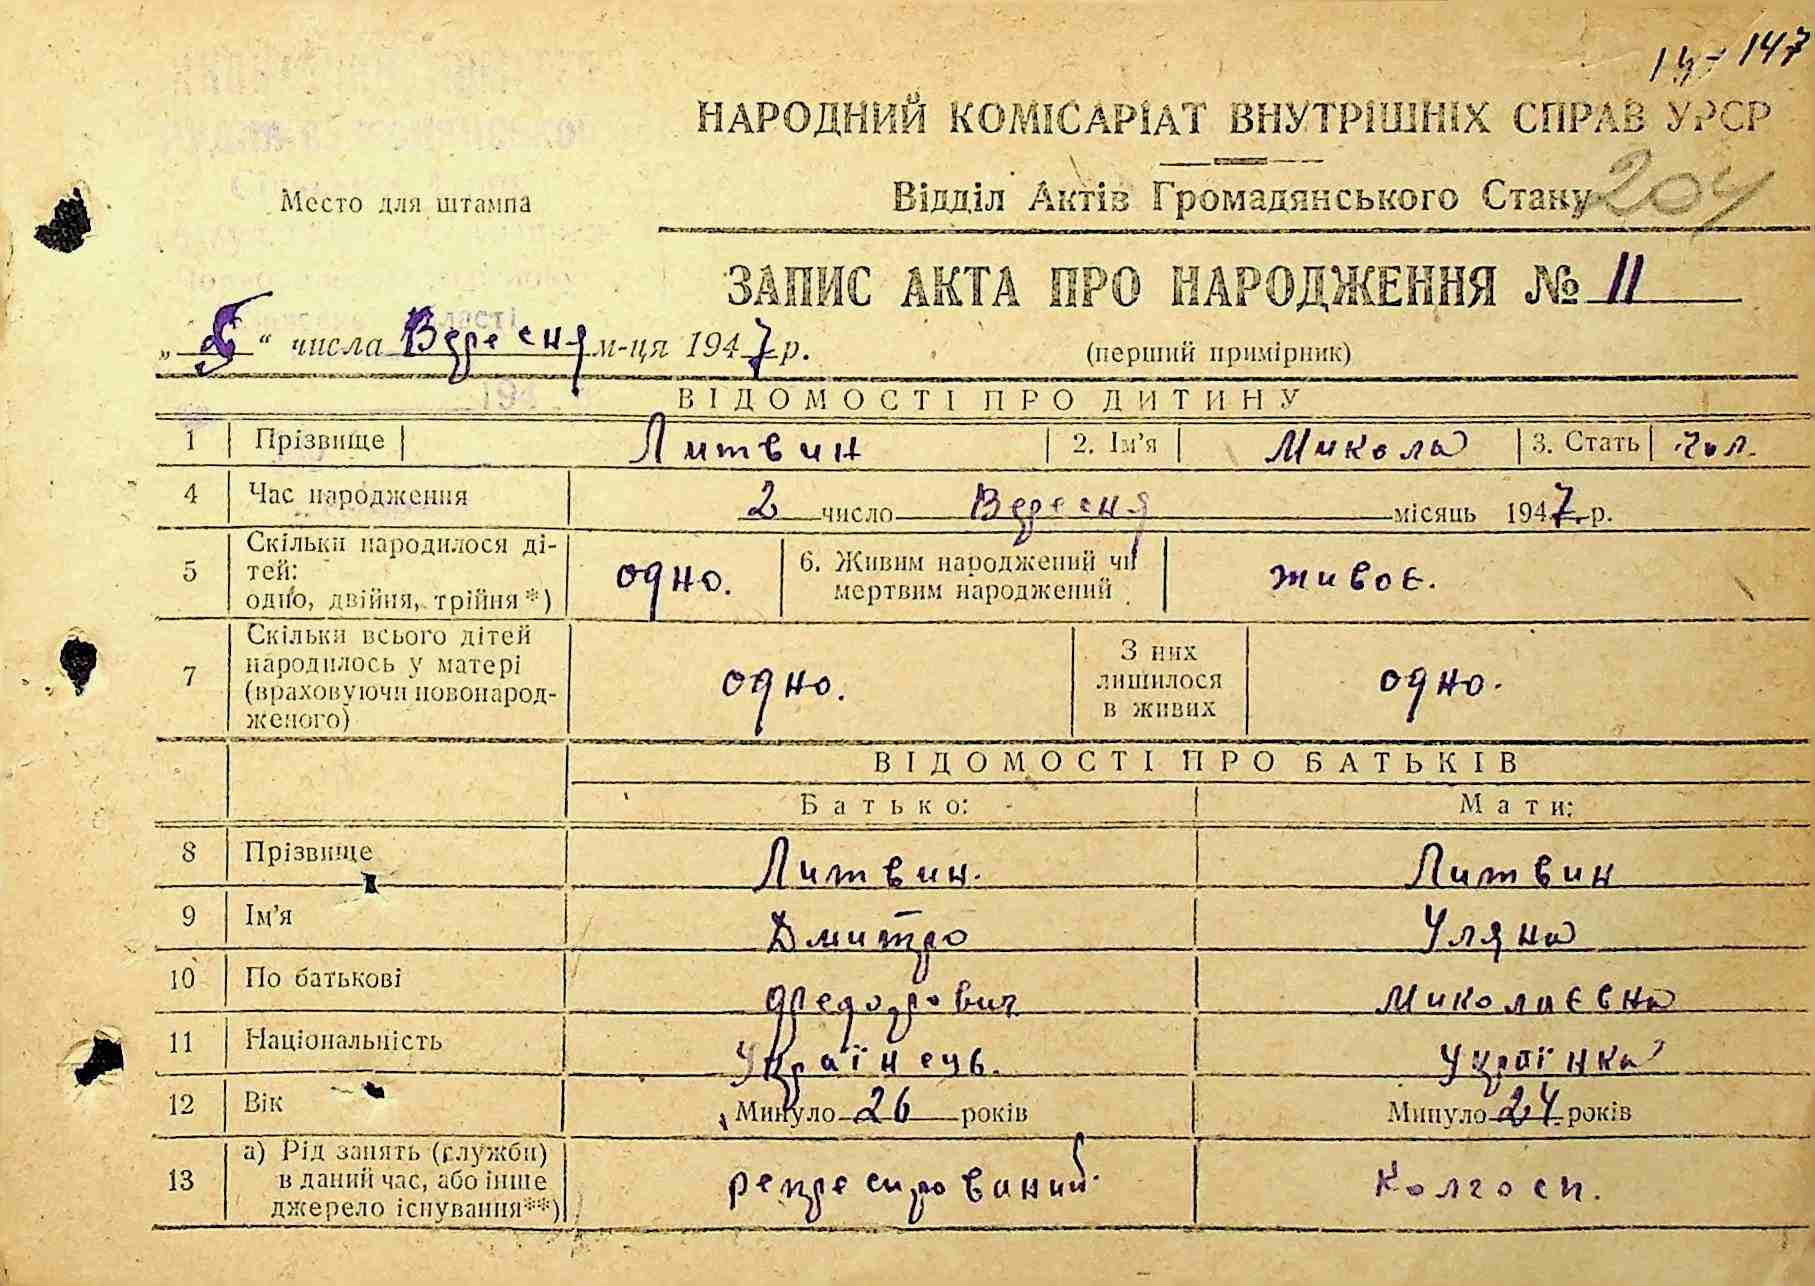 147
НАРОДНИЙ КОМІСАРІАТ ВНУТРІШНІХ СПРАВ УРСР
Место для штампа
Відділ Актів Громадянського Стану 204
ЗАПИС АКТА ПРО НАРОДЖЕННЯ № 11
„ “ числа Вересня м-ця 1947 р.
(перший примірник)
ВІДОМОСТІ ПРО ДИТИНУ
1 Прізвище Литвин 2. Ім'я Микола 3. Стать чол.
4 Час народження 2 число Вересня місяць 1947 р.
5 Скільки народилося ді-
тей:
одно, двійня, трійня*)
одно.
6. Живим народжений чи
мертвим народжений
живоє.
7 Скільки всього дітей
народилось у матері
(враховуючи новонарод-
женого)
одно.
З них
лишилося
в живих
одно.
ВІДОМОСТІ ПРО БАТЬКІВ
Батько: Мати:
8 Прізвище Литвин. Литвин
9 Ім'я Дмитро Уляна
10 По батькові Федорович Миколаєвна
11 Національність Українець. Українка
12 Вік Минуло 26 років Минуло 24 років
13 а) Рід занять (служби)
в даний час, або інше
джерело існування**)
репресирований. Колгосп.